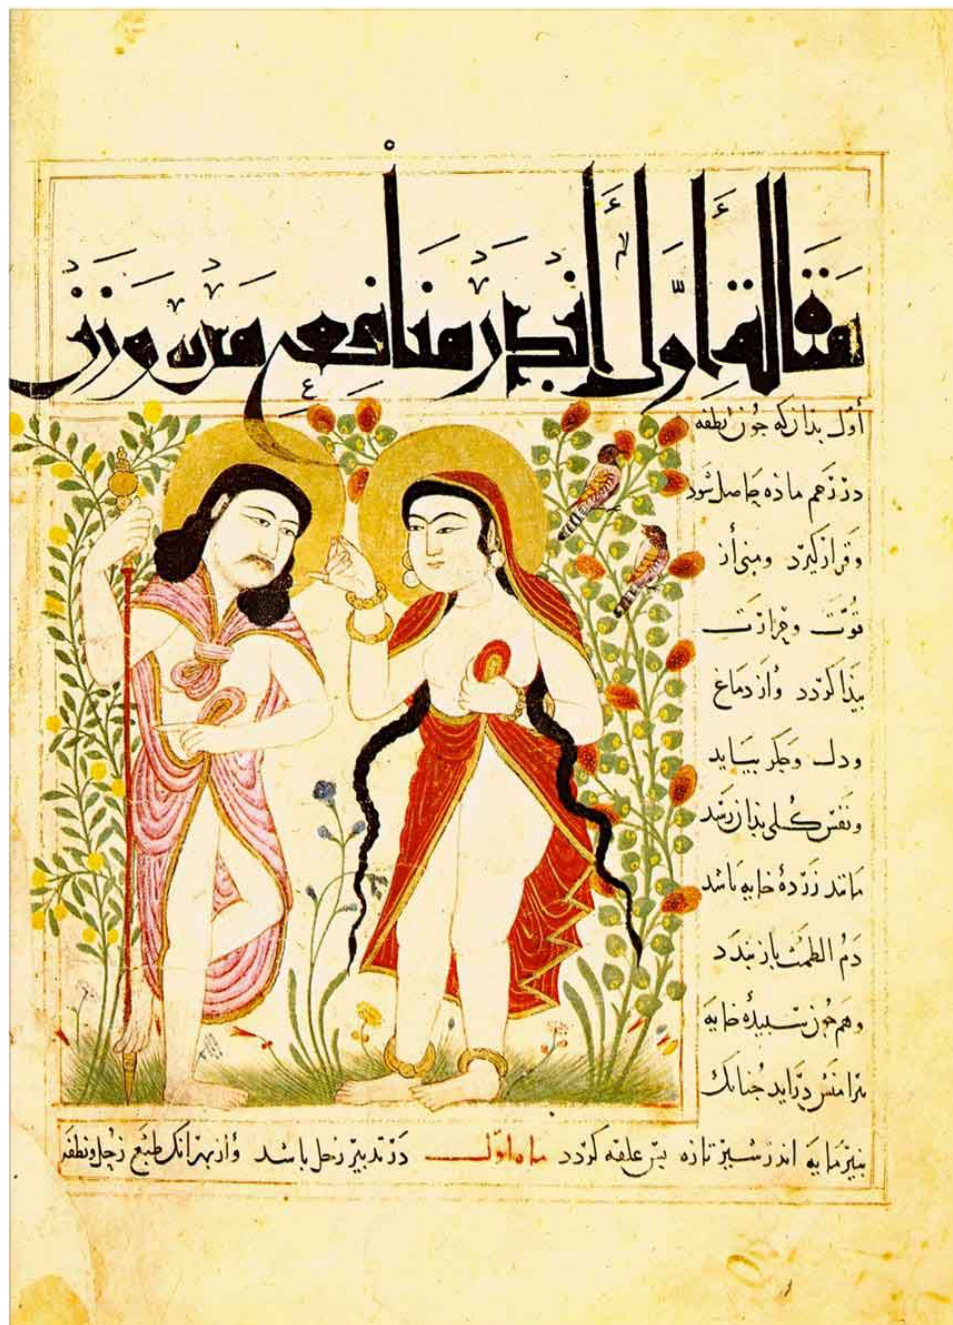 مقالة اول أندر منافع مردم
أول بذانكه جون نطفه
در رحم ماده حاصل شود
وقرار كيرد ومنى أز
قوّت وحرارت
بيذا كردد وأز دماغ
ودل وجكر بيايد
ونفس كلى بذان رسد
مانند زردهٔ خايه باشد
دم الطمث باز بندد
وهم جون سبيدهٔ خايه
درآيد جنانك
بنيرمايه اندر شير تازه بس علقه كردد ماه اوّل در تدبير زحل باشد وأز بهر انك طبع زحل ونطفه